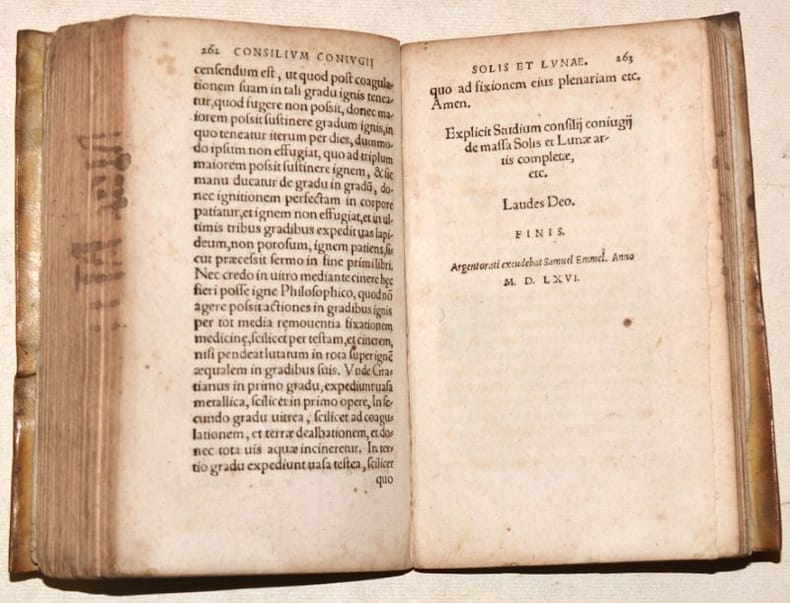 262 CONSILIVM CONIVGIJ
censendum est, ut quod post coagula-
tionem suam in tali gradu ignis tenea-
tur, quod fugere non possit, donec ma-
iorem possit sustinere gradum ignis, in
quo teneatur iterum per dies, dummo-
do ipsum non effugiat, quo ad triplum
maiorem possit sustinere ignem, & sic
manu ducatur de gradu in gradũ, do-
nec ignitionem perfectam in corpore
patiatur, et ignem non effugiat, et in ul-
timis tribus gradibus expedit uas lapi-
deum, non porosum, ignem patiens, si-
cut præcessit sermo in fine primi libri.
Nec credo in uitro mediante cinere hęc
fieri posse igne Philosophico, quod nõ
agere possit actiones in gradibus ignis
per tot media remouentia fixationem
medicinę, scilicet per testam, et cinerem,
nisi pendeat lutatum in rota super ignẽ
æqualem in gradibus suis. Vnde Gra-
tianus in primo gradu, expediunt uasa
metallica, scilicet in primo opere, In se-
cundo gradu uitrea, scilicet ad coagu-
lationem, et terræ dealbationem, et do-
nec tota uis aquæ incineretur. In ter-
tio gradu expediunt uasa testea, scilicet
quo
SOLIS ET LVNAE. 263
quo ad fixionem eius plenariam etc.
Amen.
Explicit Studium consilij coniugij
de massa Solis et Lunæ ar-
tis completæ,
etc.
Laudes Deo.
FINIS.
Argentorati excudebat Samuel Emmel. Anno
M. D. LXVI.